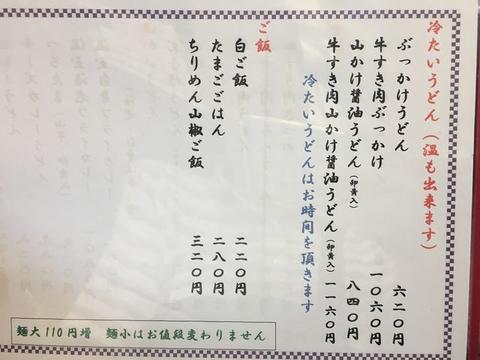 冷たいうどん(温も出来ます)
ぶっかけうどん 六二〇円
牛すき肉ぶっかけ 一〇六〇円
山かけ醤油うどん(卵黄入) 八四〇円
牛すき肉山かけ醤油うどん(卵黄入) 一一六〇円
冷たいうどんはお時間を頂きます
ご飯
白ご飯 二二〇円
たまごごはん 二八〇円
ちりめん山椒ご飯 三二〇円
麺大110円増 麺小はお値段変わりません